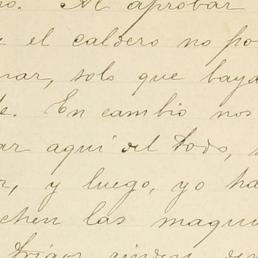 no. Al aprobar
e el caldero no po
nar, solo que baya
de. En cambio nos
ar aquí del todo,
r, y luego, yo ha
chen las maqui